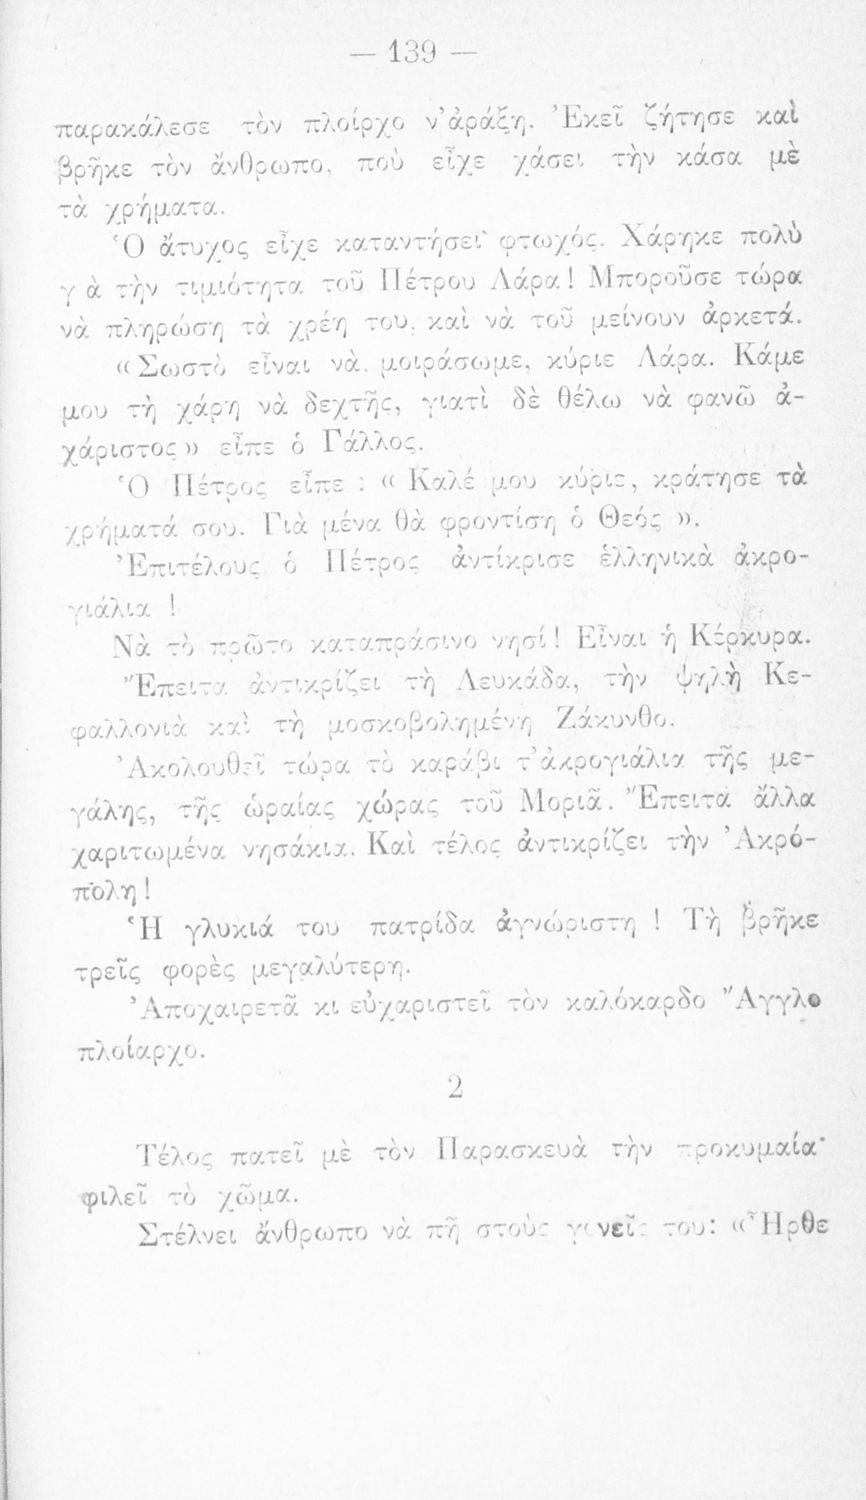 — 139 —
παρακάλεσε τὸν πλοίρχο ν’ἀράξῃ. Ἐκεῖ ζήτησε καὶ
βρῆκε τὸν ἄνθρωπο, ποὺ εἶχε χάσει τὴν κάσα μὲ
τὰ χρήματα.
Ὁ ἄτυχος εἶχε καταντήσει φτωχός. Χάρηκε πολὺ
γ ὰ τὴν τιμιότητα τοῦ Πέτρου Λάρα! Μποροῦσε τώρα
νὰ πληρώσῃ τὰ χρέη του, καὶ νὰ τοῦ μείνουν ἀρκετά.
«Σωστὸ εἶναι νὰ μοιράσωμε, κύριε Λάρα. Κάμε
μου τὴ χάρη νὰ δεχτῆς, γιατὶ δὲ θέλω νὰ φανῶ ἀ-
χάριστος» εἶπε ὁ Γάλλος.
Ὁ Πέτρος εἶπε : « Καλέ μου κύριε, κράτησε τὰ
χρήματά σου. Γιὰ μένα θὰ φροντίσῃ ὁ Θεός ».
Ἐπιτέλους ὁ Πέτρος ἀντίκρισε ἑλληνικὰ ἀκρο-
γιάλια !
Νὰ τὸ πρῶτο καταπράσινο νησί! Εἶναι ἡ Κέρκυρα.
Ἔπειτα ἀντικρίζει τὴ Λευκάδα, τὴν ψηλὴ Κε-
φαλλονιὰ καὶ τὴ μοσκοβολημένη Ζάκυνθο.
Ἀκολουθεῖ τώρα τὸ καράβι τ’ἀκρογιάλια τῆς με-
γάλης, τῆς ὡραίας χώρας τοῦ Μοριᾶ. Ἔπειτα ἄλλα
χαριτωμένα νησάκια. Καὶ τέλος ἀντικρίζει τὴν Ἀκρό-
πολη!
Ἡ γλυκιά του πατρίδα ἀγνώριστη ! Τὴ βρῆκε
τρεῖς φορὲς μεγαλύτερη.
Ἀποχαιρετᾶ κι εὐχαριστεῖ τὸν καλόκαρδο Ἄγγλο
πλοίαρχο.
2
Τέλος πατεῖ μὲ τὸν Παρασκευὰ τὴν προκυμαία·
φιλεῖ τὸ χῶμα.
Στέλνει ἄνθρωπο νὰ πῆ στοὺς γονεῖς του: «Ἦρθε